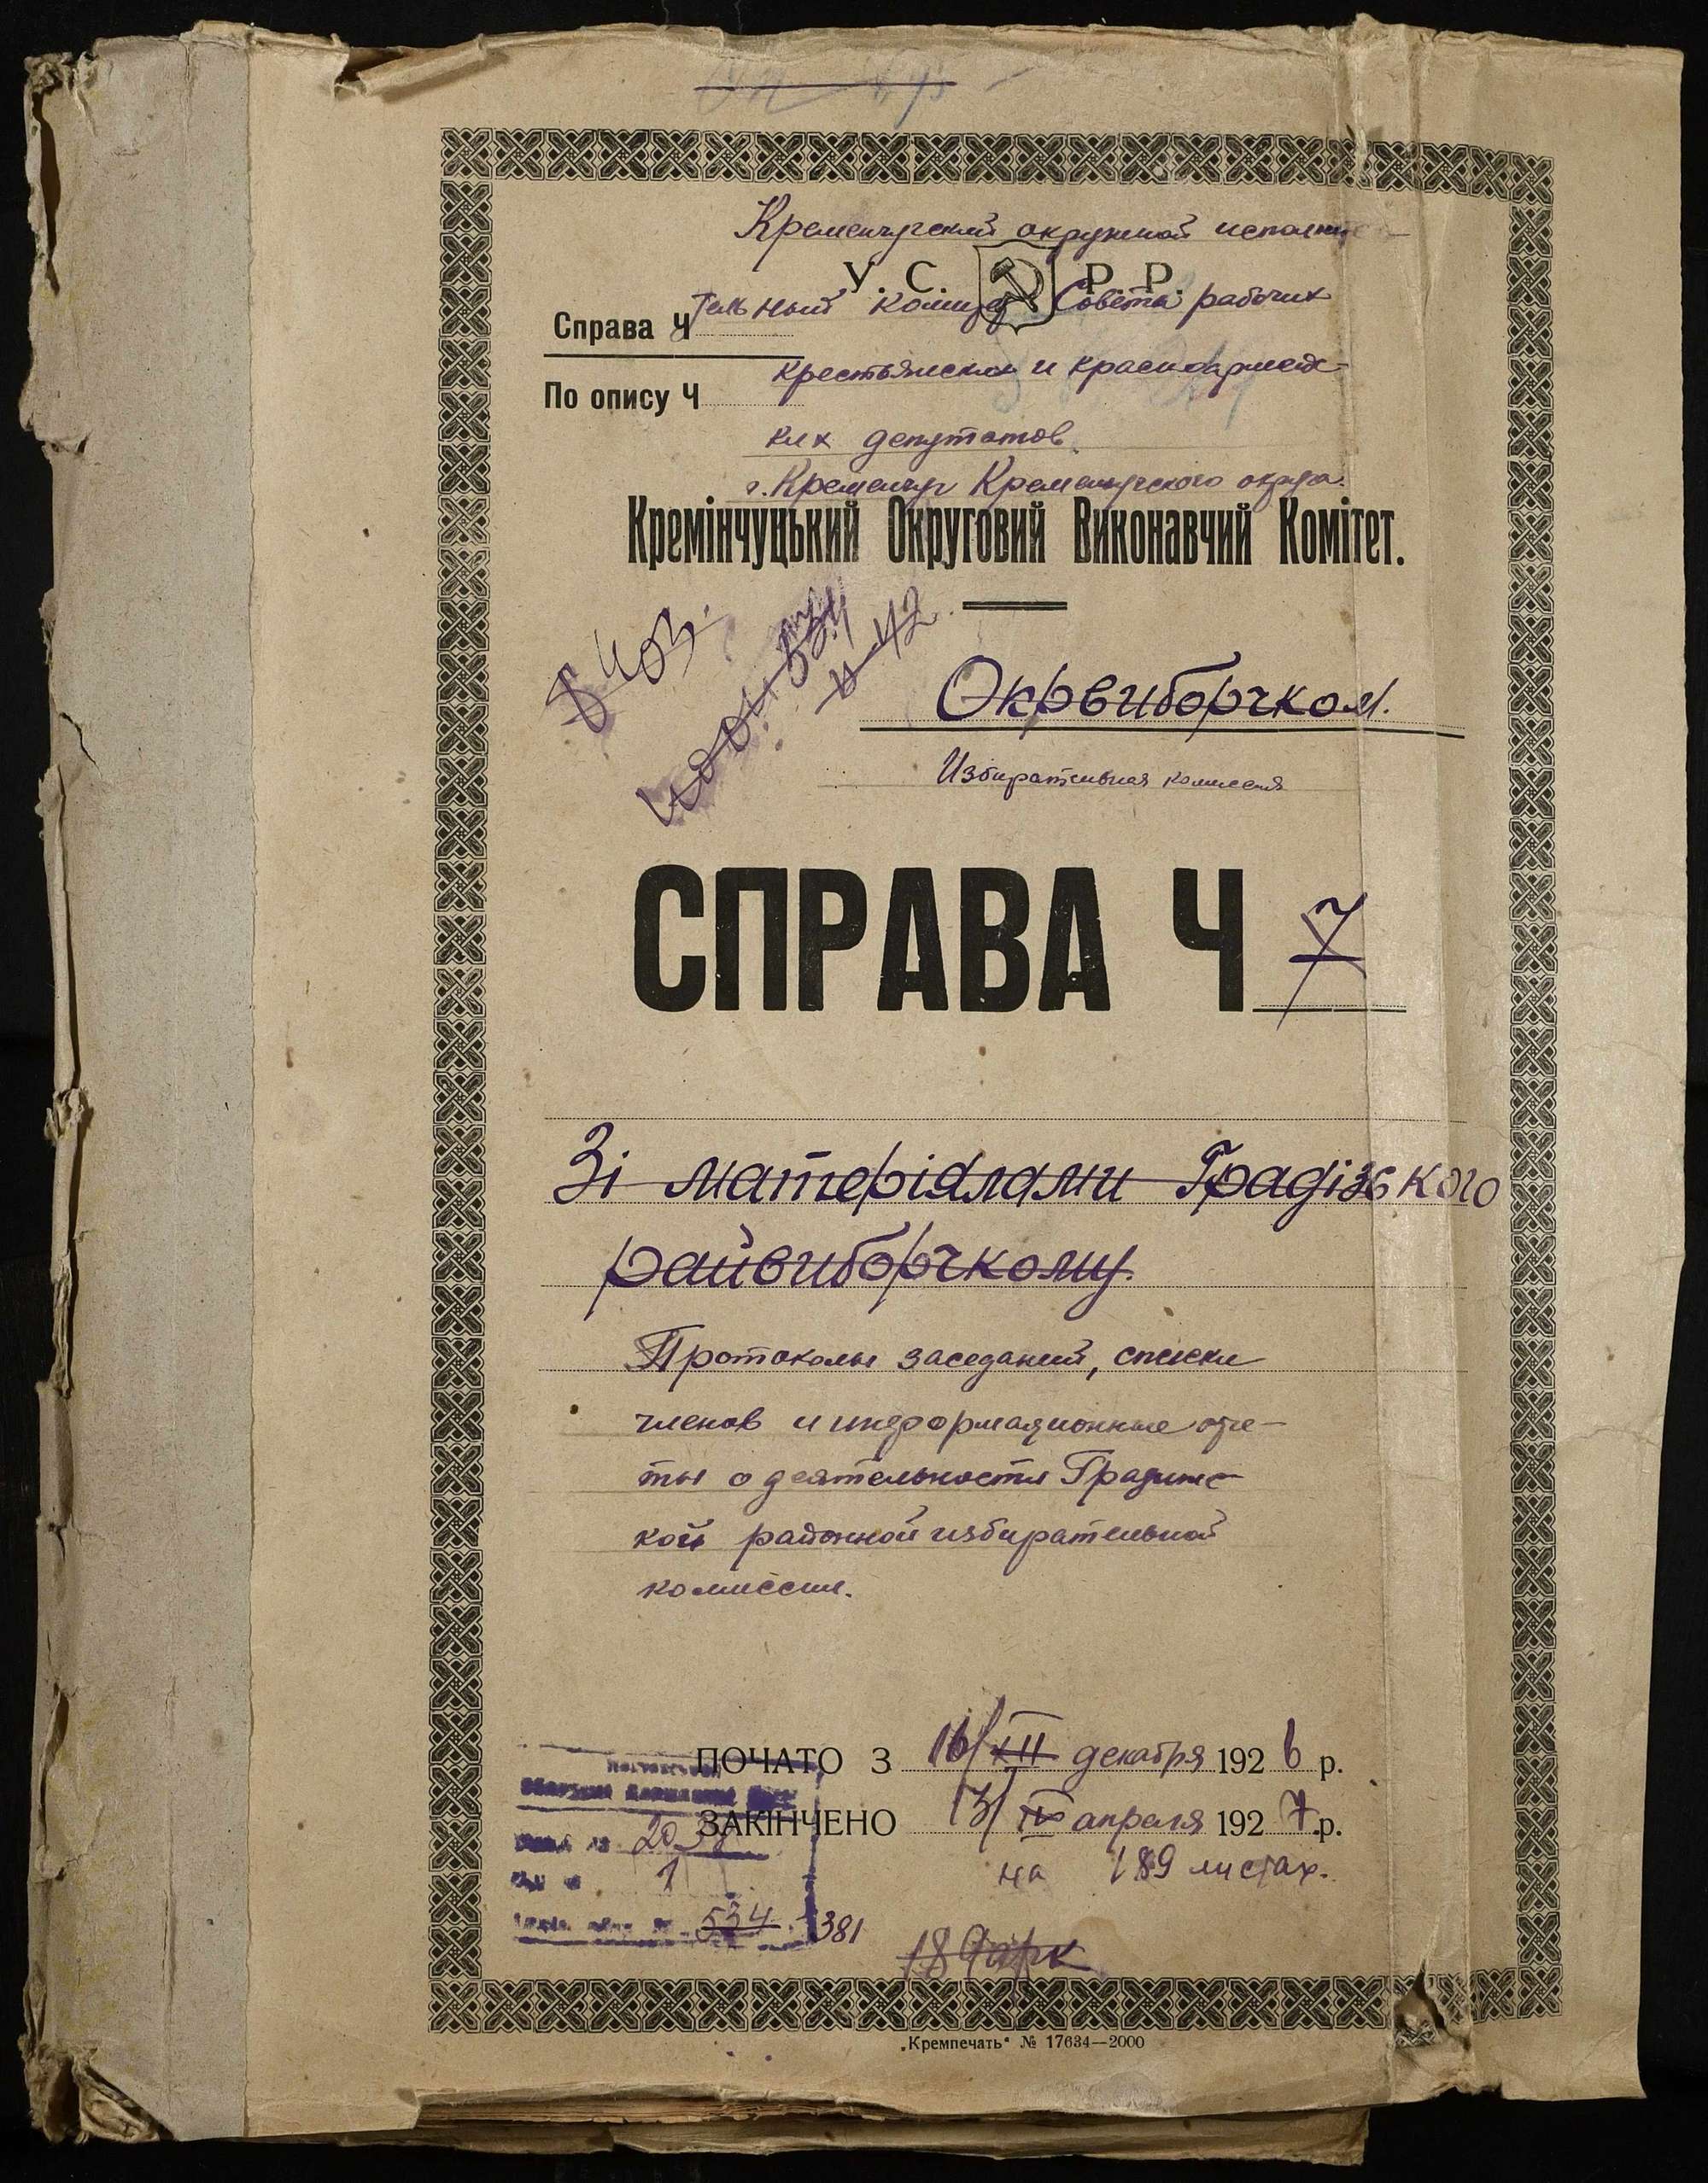 Кременчугский окружной исполни-
У. С. Р. Р.
тельный комитет Совета рабочих
Справа Ч
крестьянских и красноармейс-
По опису Ч
ких депутатов
г. Кременчуг Кременчугского округа.
Кремінчуцький Округовий Виконавчий Комітет.
Окрвиборчком.
Избирательная комиссия
СПРАВА Ч 7
Зі матеріялами Градізького
райвиборчкому.
Протоколы заседаний, списки
членов и информационные отче-
ты о деятельности Градижс-
кой районной избирательной
комиссии.
ПОЧАТО З 16/XII декабря 1926 р.
ЗАКІНЧЕНО 13/IV апреля 1927 р.
на 189 листах.
1
534 381
189 арк
„Кремпечать" № 17634—2000